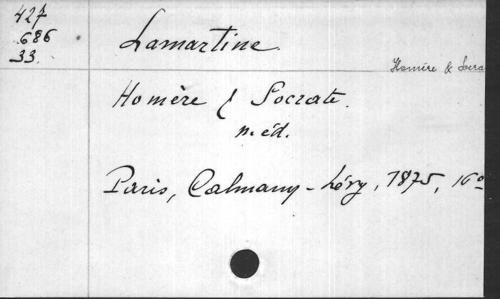 427
686
33
Lamartine
Homère & Socra
Homère & Socrate.
n. éd.
Paris, Calmany-Lévy, 1875, 16°